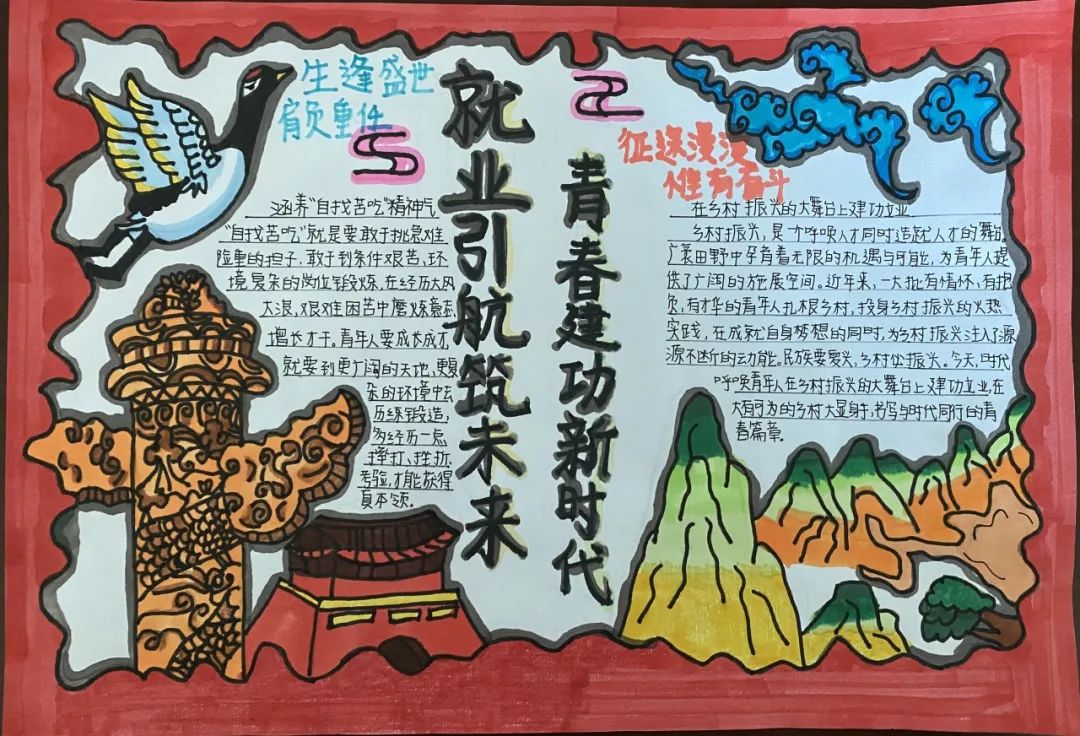 生逢盛世
肩负重任
就业引航筑未来
青春建功新时代
征途漫漫
惟有奋斗
涵养“自找苦吃”精神气
“自找苦吃”就是要敢于挑急难
险重的担子,敢于到条件艰苦、环
境复杂的岗位锻炼,在经历大风
大浪,艰难困苦中磨炼意志
增长才干。青年人要成长成才,
就要到更广阔的天地、更复
杂的环境中去
历练锻造,
多经历一点
摔打、挫折、
考验,才能获得
真本领。
在乡村振兴的大舞台上建功立业
乡村振兴,是一个呼唤人才同时造就人才的舞台。
广袤田野中孕育着无限的机遇与可能,为青年人提
供了广阔的施展空间。近年来,一大批有情怀,有抱
负,有才华的青年人扎根乡村,投身乡村振兴的火热
实践,在成就自身梦想的同时,为乡村振兴注入了源
源不断的动能。民族要复兴,乡村必振兴。今天,时代
呼唤青年人在乡村振兴的大舞台上建功立业,在
大有可为的乡村大显身手,书写与时代同行的青
春篇章。